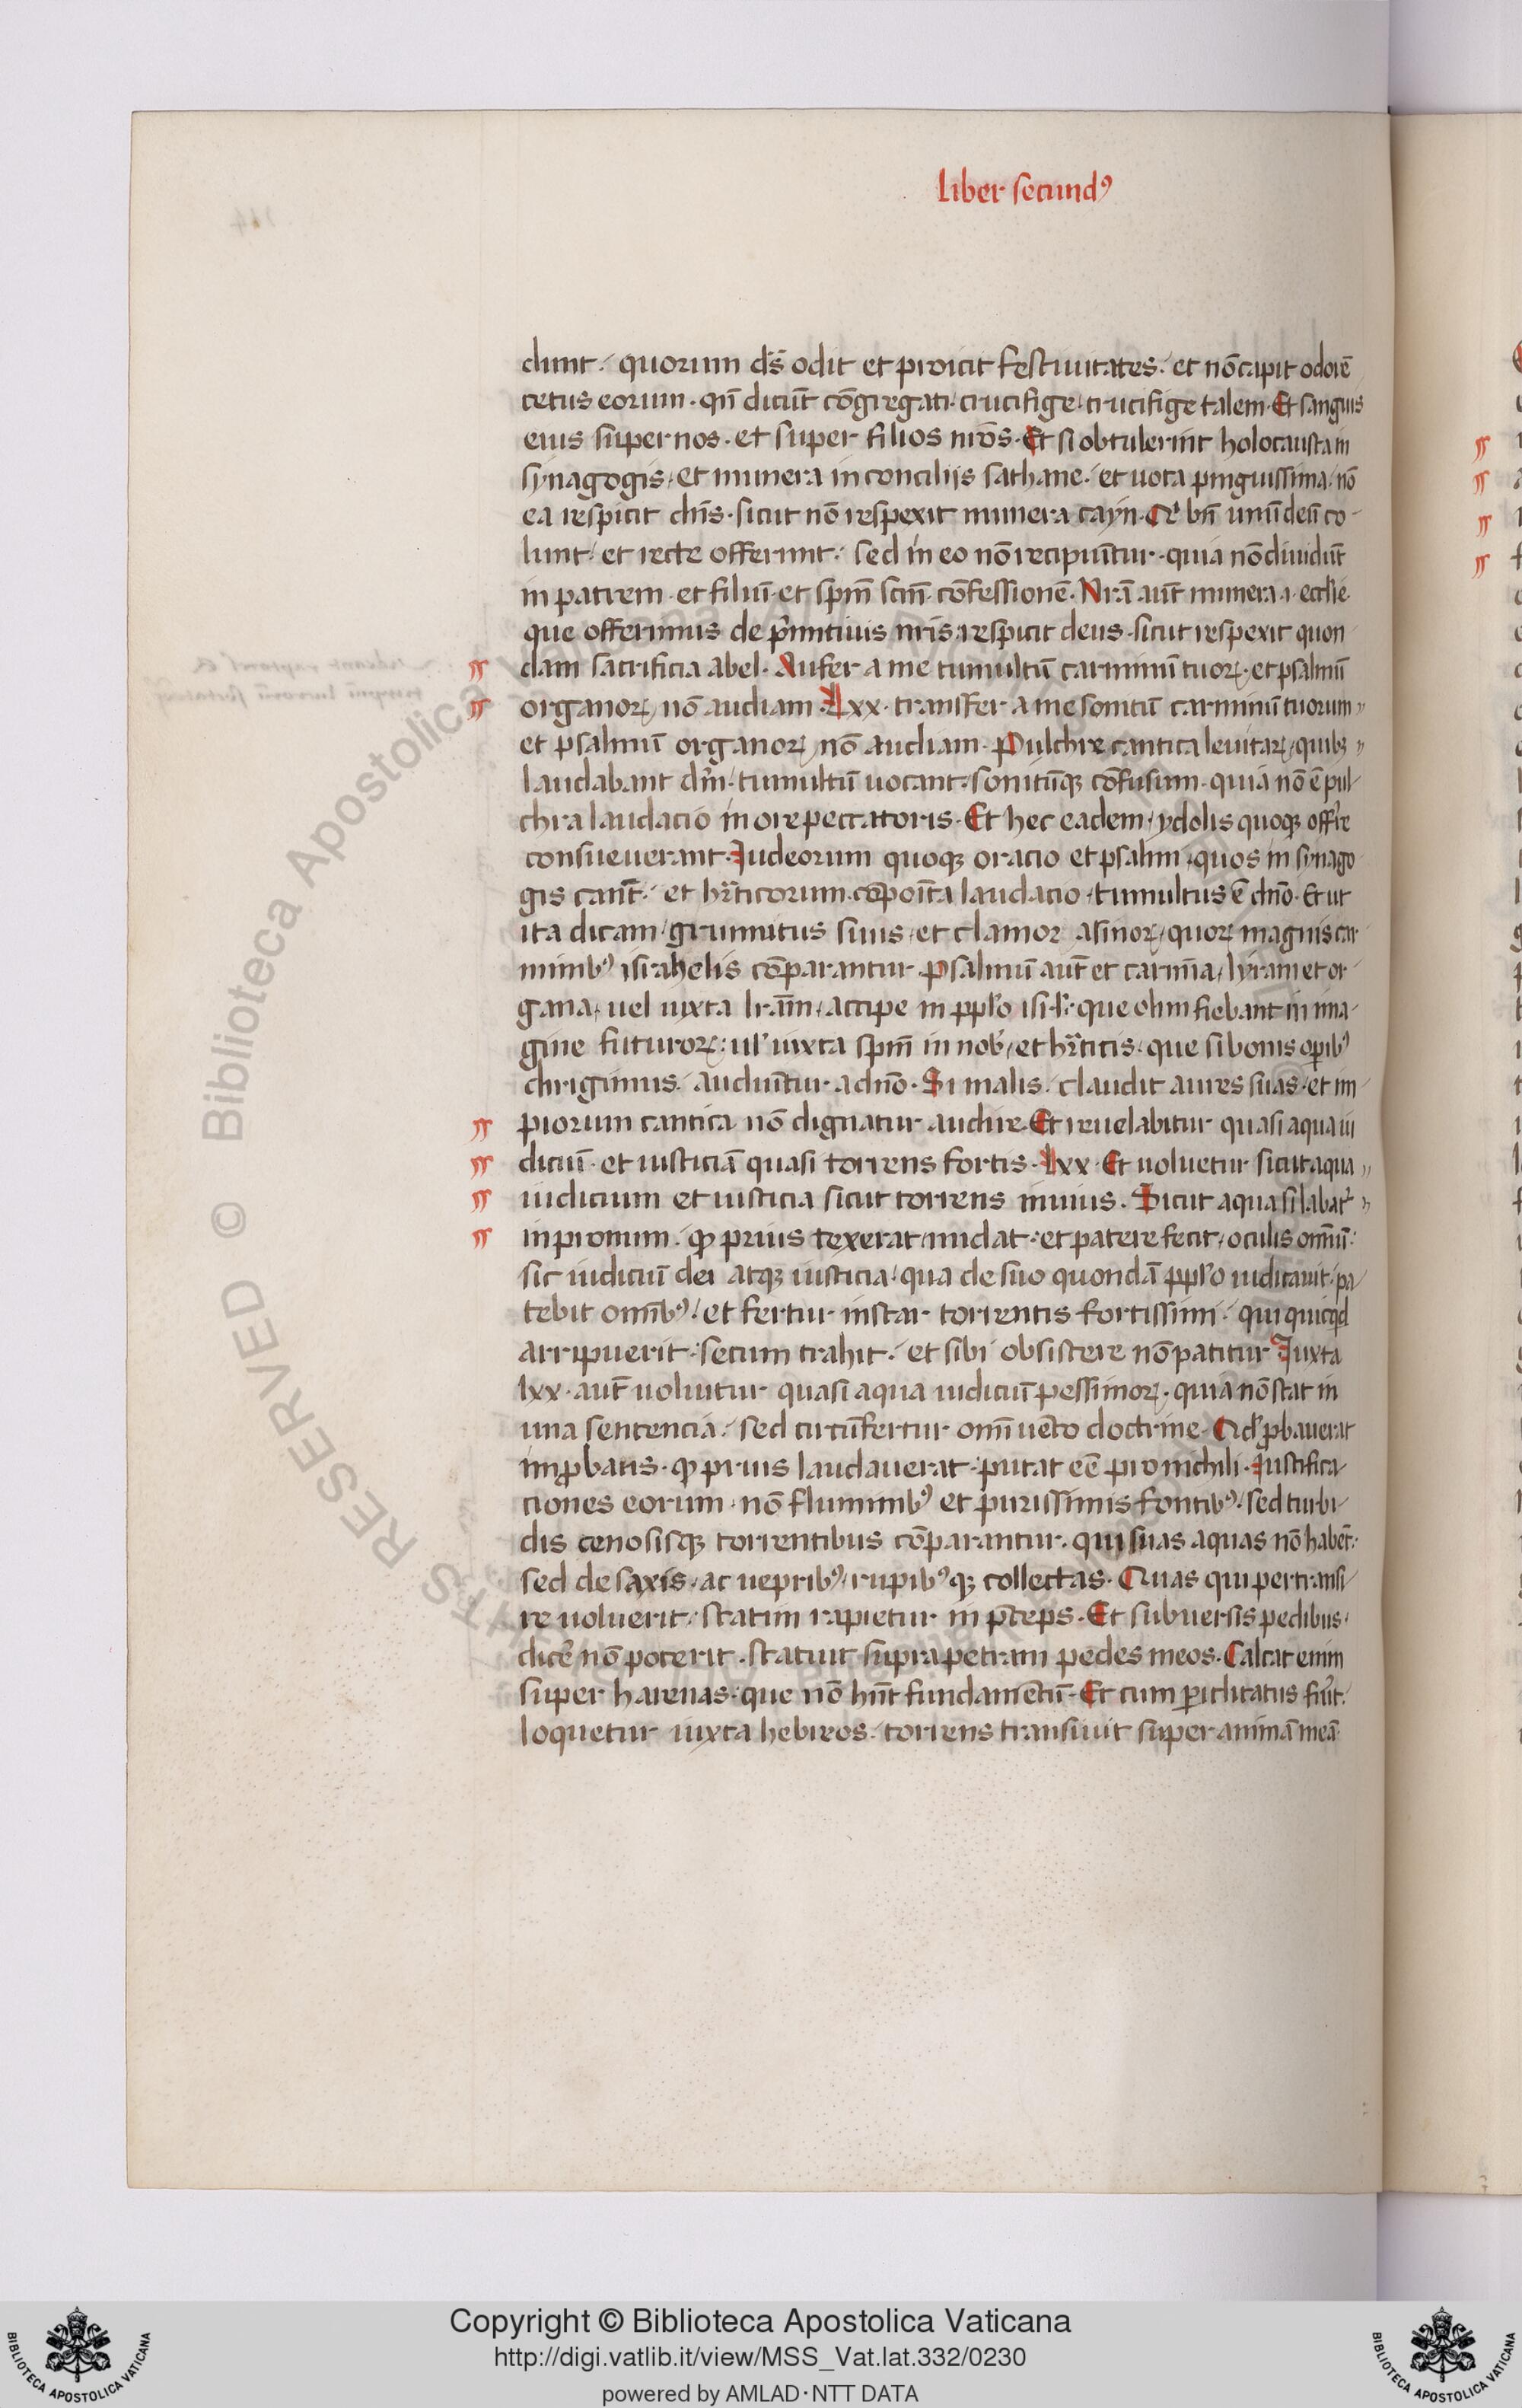 Liber secundꝰ
dunt · quorum ds̄ odit et proicit festiuitates · et nō capit odorē
cetus eorum · qn̄ dicūt cōgregati · crucifige · crucifige talem · Et sanguis
eius super nos · et super filios nr̄os · Et si obtulerint holocausta in
synagogis · et munera in concilijs sathane · et uota pinguissima / nō
ea respicit dn̄s · sicut nō respexit munera cayn · bn̄ unū deū co-
lunt · et recte offerunt · sed in eo nō recipiūtur · quia nō diuidūt
in patrem · et filiū · et spm̄ scm̄ · cōfessionē · Nr̄a aūt munera · i · ecclīe
que offerimus de pͥmitiuis nr̄is · respicit deus · sicut respexit quon
dam sacrificia abel · Aufer a me tumultū carminū tuorꝝ · et psalmū
organorꝝ / nō audiam · Lxx · transfer a me sonitū carminū tuorum ·
et psalmū organorꝝ / nō audiam · Pulchre cantica leuitarꝝ / quibꝫ
laudabant dm̄ · tumultū uocant · sonitūqꝫ cōfusum · quia nō ē pul-
chra laudacio in ore peccatoris · Et hec eadem / ydolis quoqꝫ offr̄e
consueuerant · Iudeorum quoqꝫ oracio et psalmi · quos in synago
gis canūt · et hr̄eticorum cōpoīta laudacio · tumultus ē dn̄o · Et ut
ita dicam / grunnitus suus · et clamor asinorꝝ / quorꝝ magnis car-
minibꝰ israhelis cōparantur · Psalmū aūt et carmīa / lyram et or-
gana · uel iuxta lr̄am · accipe in ppl̄o isrl̄ · que olim fiebant in ima-
gine futurorꝝ : ul̄ iuxta spm̄ in nob̄ / et hr̄eticis · que si bonis oꝑibꝰ
dirigimus · audiūtur a dn̄o · Si malis · claudit aures suas · et im-
piorum cantica nō dignatur audire · Et reuelabitur quasi aqua iu
diciū · et iusticiā quasi torrens fortis · Lxx · Et uoluetur sicut aqua
iudicium et iusticia sicut torrens inuius · Sicut aqua si labat᷑
in pronum · qđ prius texerat / nudat · et patere fecit / oculis omniū :
sic iudiciū dei atqꝫ iusticia · qua de suo quondā ppl̄o iudicauit · pa-
tebit omībꝰ · et fertur instar torrentis fortissimi · qui quicqͥd
arripuerit · secum trahit · et sibi obsistere nō patitur Iuxta
lxx · aūt uoluitur quasi aqua iudiciū pessimorꝝ · quia nō stat in
una sentencia · sed circūfertur omī uēto doctrine · Qđ ꝓbauerat
imꝓbatis · qđ prius laudauerat · putat eē pro nichili · Iustifica-
ciones eorum · nō fluminibꝰ et purissimis fontibꝰ · sed turbi-
dis cenosisqꝫ torrentibus cōparantur · qui suas aquas nō habēt ·
sed de saxis · ac uepribꝰ / rupibꝰqꝫ collectas · Quas qui pertransi-
re uoluerit · statim rapietur in p̄ceps · Et subuersis pedibus ·
dicē nō poterit · statuit supra petram pedes meos · Calcat enim
super harenas · que nō hn̄t fundamētū · Et cum ꝑiclitatus fūit ·
loquetur iuxta hebreos · torrens transiuit super animā meā
Copyright © Biblioteca Apostolica Vaticana
http://digi.vatlib.it/view/MSS_Vat.lat.332/0230
powered by AMLAD · NTT DATA